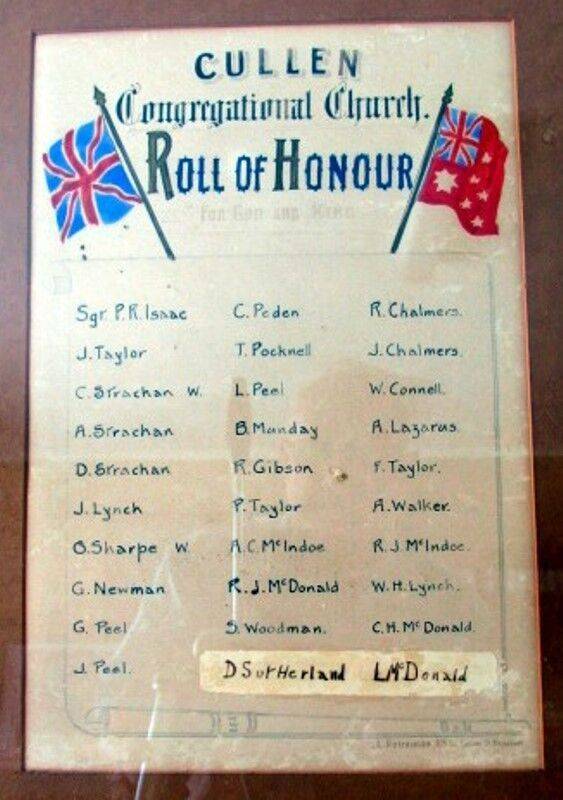 CULLEN
Congregational Church.
ROLL OF HONOUR
FOR GOD AND KING
Sgr. P.R. Isaac C. Peden R. Chalmers.
J. Taylor T. Pocknell J. Chalmers.
C. Strachan W. L. Peel W. Connell.
A. Strachan B. Munday A. Lazarus.
D. Strachan R. Gibson F. Taylor.
J. Lynch P. Taylor A. Walker.
O. Sharpe W A. C. McIndoe R. J. McIndoe.
G. Newman R. J. McDonald W. H. Lynch.
G. Peel S. Woodman. C. H. McDonald.
J. Peel. D Sutherland L McDonald